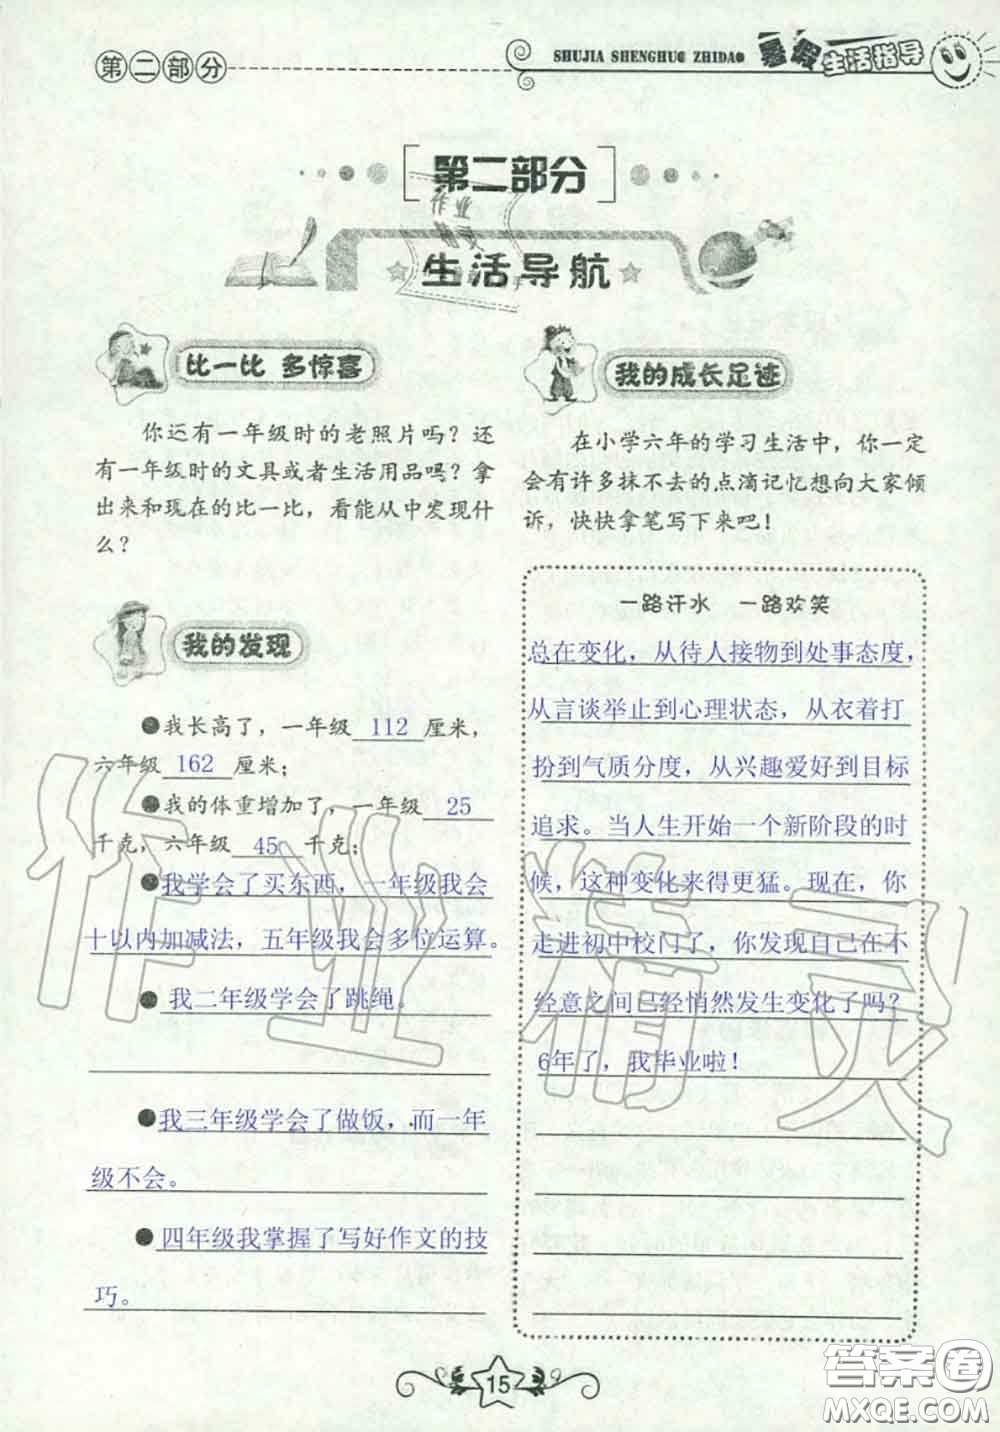 第二部分
SHUJIA SHENGHUO ZHIDAO
暑假生活指导
第二部分
生活导航
比一比 多惊喜
你还有一年级时的老照片吗？还
有一年级时的文具或者生活用品吗？拿
出来和现在的比一比，看能从中发现什
么？
我的发现
●我长高了，一年级 112 厘米，
六年级 162 厘米；
●我的体重增加了，一年级 25
千克，六年级 45 千克；
●我学会了买东西，一年级我会
十以内加减法，五年级我会多位运算。
●我二年级学会了跳绳。
●我三年级学会了做饭，而一年
级不会。
●四年级我掌握了写好作文的技
巧。
我的成长足迹
在小学六年的学习生活中，你一定
会有许多抹不去的点滴记忆想向大家倾
诉，快快拿笔写下来吧！
一路汗水 一路欢笑
总在变化，从待人接物到处事态度，
从言谈举止到心理状态，从衣着打
扮到气质分度，从兴趣爱好到目标
追求。当人生开始一个新阶段的时
候，这种变化来得更猛。现在，你
走进初中校门了，你发现自己在不
经意之间已经悄然发生变化了吗？
6年了，我毕业啦！
15
作业精灵
答案圈
MXQE.COM